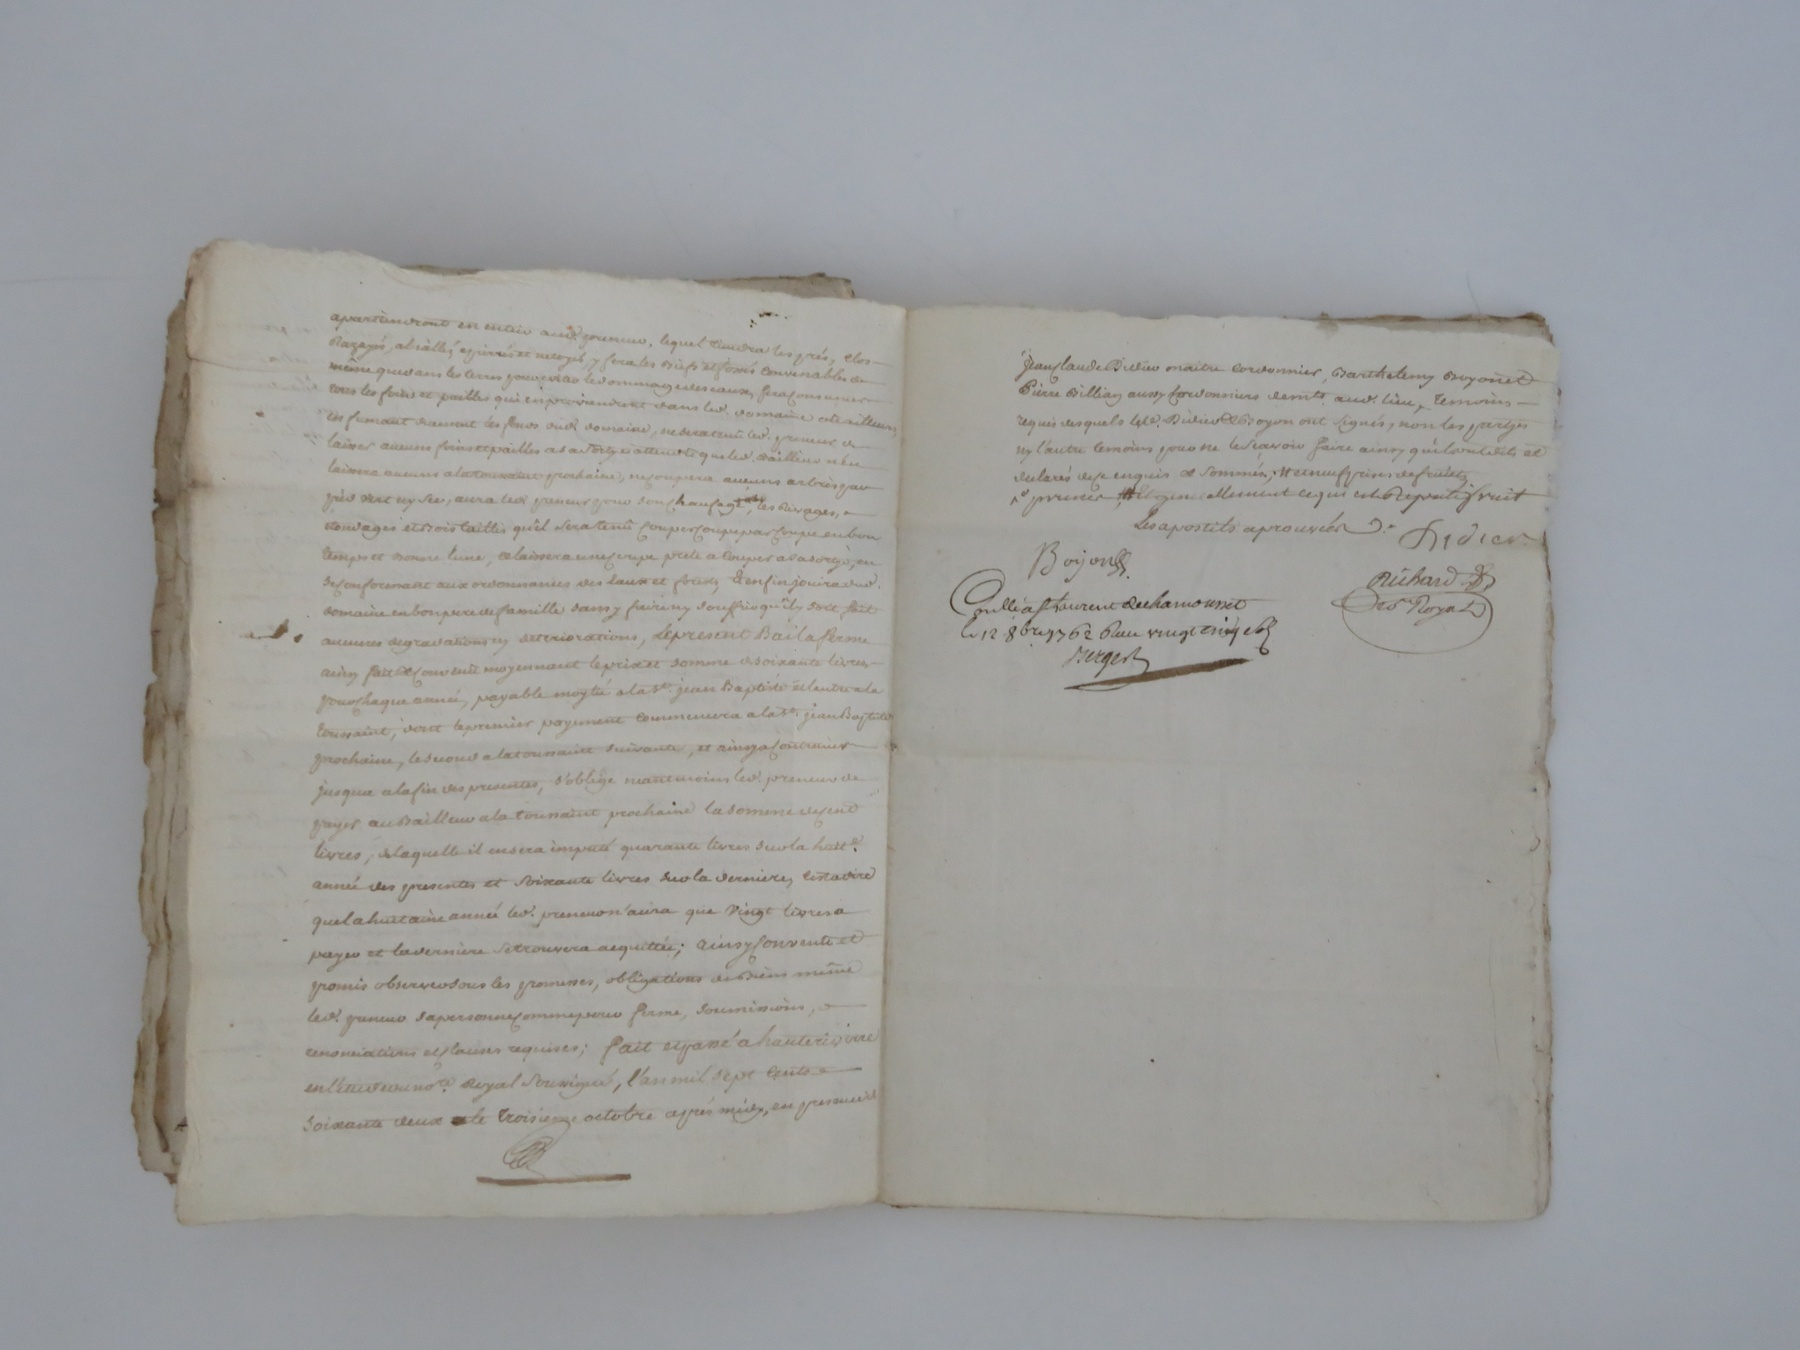 apartiendront en entier aud. preneur, lequel tiendra les prés, clos
Razegés, et nétoyés, y fera les Biefs et fossés convenables de
même que dans les terres pour éviter le dommage des eaux, fera consumer
tous les foins et pailles qui en proviendront dans led. domaine et d'ailleurs
les fumant diement les fonds dud. domaine, ne sera tenu led. preneur de
laisser aucuns foins et pailles a sa sortie attendu que led. Bailleur n'en
laissera aucuns a la toussaint prochaine, ne coupera aucuns arbres par
pied vert ny sec, aura led. preneur pour son chaufage, les Rivages,
et Bois taillis qu'il sera tenu couper coupe par coupe en bon
temps et bonne lune, et laissera une coupe prete a couper a sa sortie, en
se conformant aux ordonnances des Eaux et forets, Et enfin jouira dud.
domaine en bon pere de famille sans y faire ny souffrir qu'il y soit fait
aucunes degradations ny deteriorations, Le present Bail a ferme
ainsy fait et convenu moyennant le prix et somme de soixante livres
pour chaque année, payable moytié a la St. jean Baptiste et l'autre a la
toussaint, dont le premier payement commencera a la St. jean Baptiste
prochaine, le second a la toussaint suivante, et ainsy a continuer
jusqu'a la fin des presentes, s'oblige neantmoins led. preneur de
payer au Bailleur a la toussaint prochaine la somme de cent
livres, de laquelle il en sera imputé quarante livres sur la huite.
année des presentes et soixante livres sur la derniere, c'est a dire
que la huitaine année led. preneur n'aura que vingt livres a
payer et la derniere se trouvera acquittée; ainsy convenu et
promis observer sous les promesses, obligations de Biens même
led. preneur sa personne comme pour ferme, soumissions,
renonciations et clauses requises; fait et passé a hauterivoire
en l'étude du no.re Royal soussigné, l'an mil sept cents
soixante deux et le troisieme octobre après midy, en presence de
jean Claude Didier maitre cordonnier, Barthelemy Boyon et
Pierre Billiay aussy Cordonniers demts. aud. lieu, temoins
requis desquels les d. Didier et Boyon ont signés, non les partyes
ny l'autre temoins pour ne le savoir faire ainsy qu'ils ont dits et
declarés de ce enquis et sommés,
Les apostils aprouvées
Didier
Boyon
Richard
No.re Royal
Conllé a St Laurent de chamousset
le 12 8bre 1762 Reçu vingt cinq
Berger